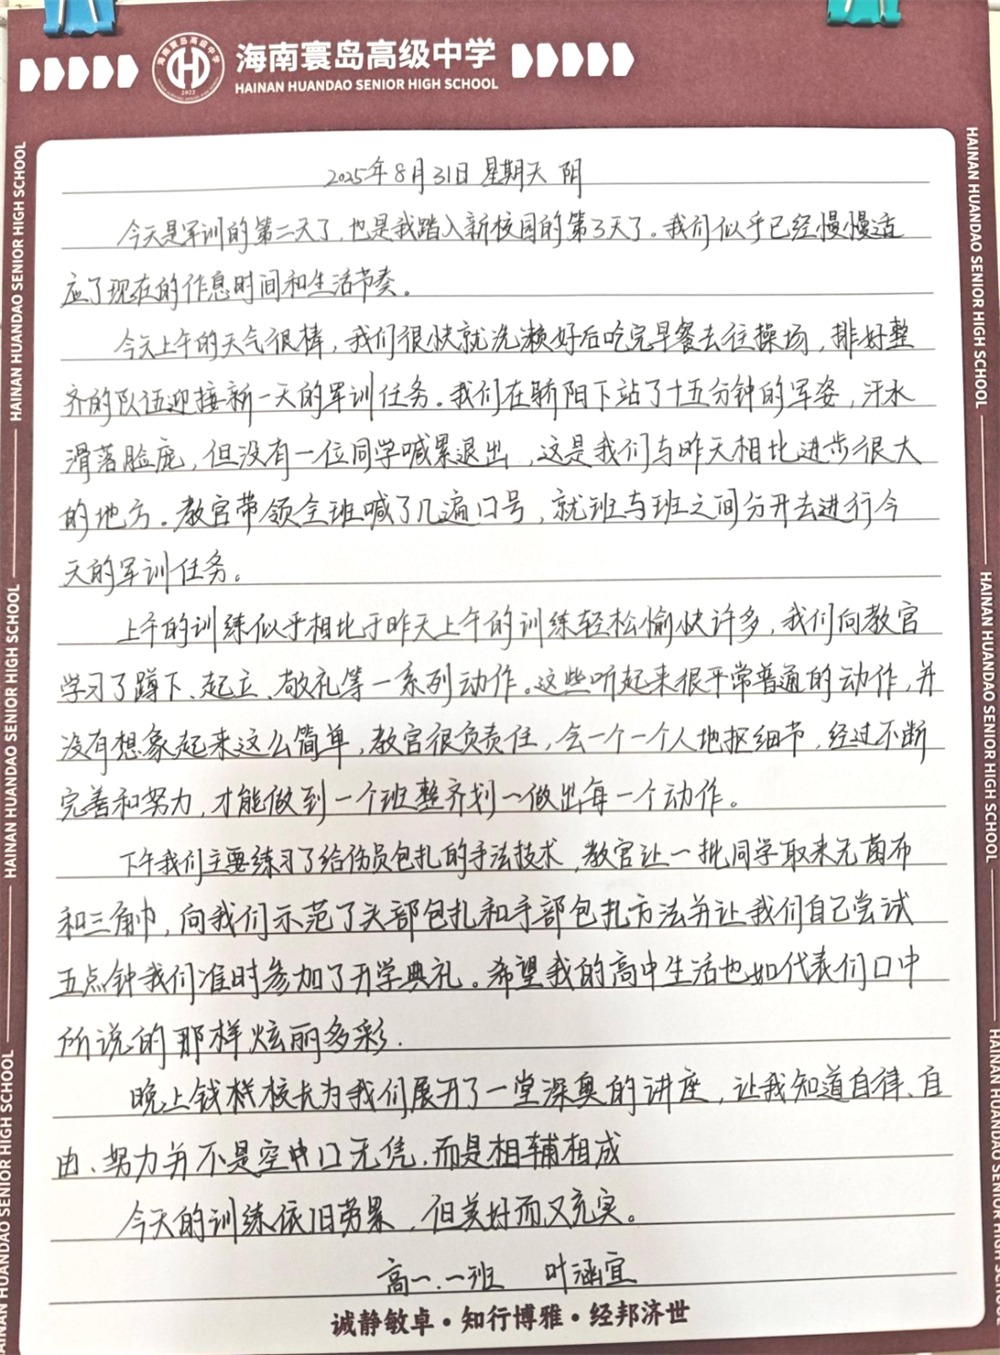 海南寰岛高级中学
HAINAN HUANDAO SENIOR HIGH SCHOOL
2025年8月31日 星期天 阴
今天是军训的第二天了，也是我踏入新校园的第3天了。我们似乎已经慢慢适
应了现在的作息时间和生活节奏。
今天上午的天气很棒，我们很快就洗漱好后吃完早餐去往操场，排好整
齐的队伍迎接新一天的军训任务。我们在骄阳下站了十五分钟的军姿，汗水
滑落脸庞，但没有一位同学喊累退出，这是我们与昨天相比进步很大
的地方。教官带领全班喊了几遍口号，就班与班之间分开去进行今
天的军训任务。
上午的训练似乎相比于昨天上午的训练轻松愉快许多，我们向教官
学习了蹲下、起立、敬礼等一系列动作。这些听起来很平常普通的动作，并
没有想象起来这么简单，教官很负责任，会一个一个人地抠细节，经过不断
完善和努力，才能做到一个班整齐划一做出每一个动作。
下午我们主要练习了给伤员包扎的手法技术，教官让一批同学取来无菌布
和三角巾，向我们示范了头部包扎和手部包扎方法并让我们自己尝试
五点钟我们准时参加了开学典礼。希望我的高中生活也如代表们口中
所说的那样炫丽多彩.
晚上钱样校长为我们展开了一堂深奥的讲座，让我知道自律、自
由、努力并不是空中口无凭，而是相辅相成
今天的训练依旧劳累，但美好而又充实。
高一.一班 叶涵宜
诚静敏卓·知行博雅·经邦济世
HAINAN HUANDAO SENIOR HIGH SCHOOL
HAINAN HUANDAO SENIOR HIGH SCHOOL
HAINAN HUANDAO SENIOR HIGH SCHOOL
HAINAN HUANDAO SENIOR HIGH SCHOOL
HAINAN HUANDAO SENIOR HIGH SCHOOL